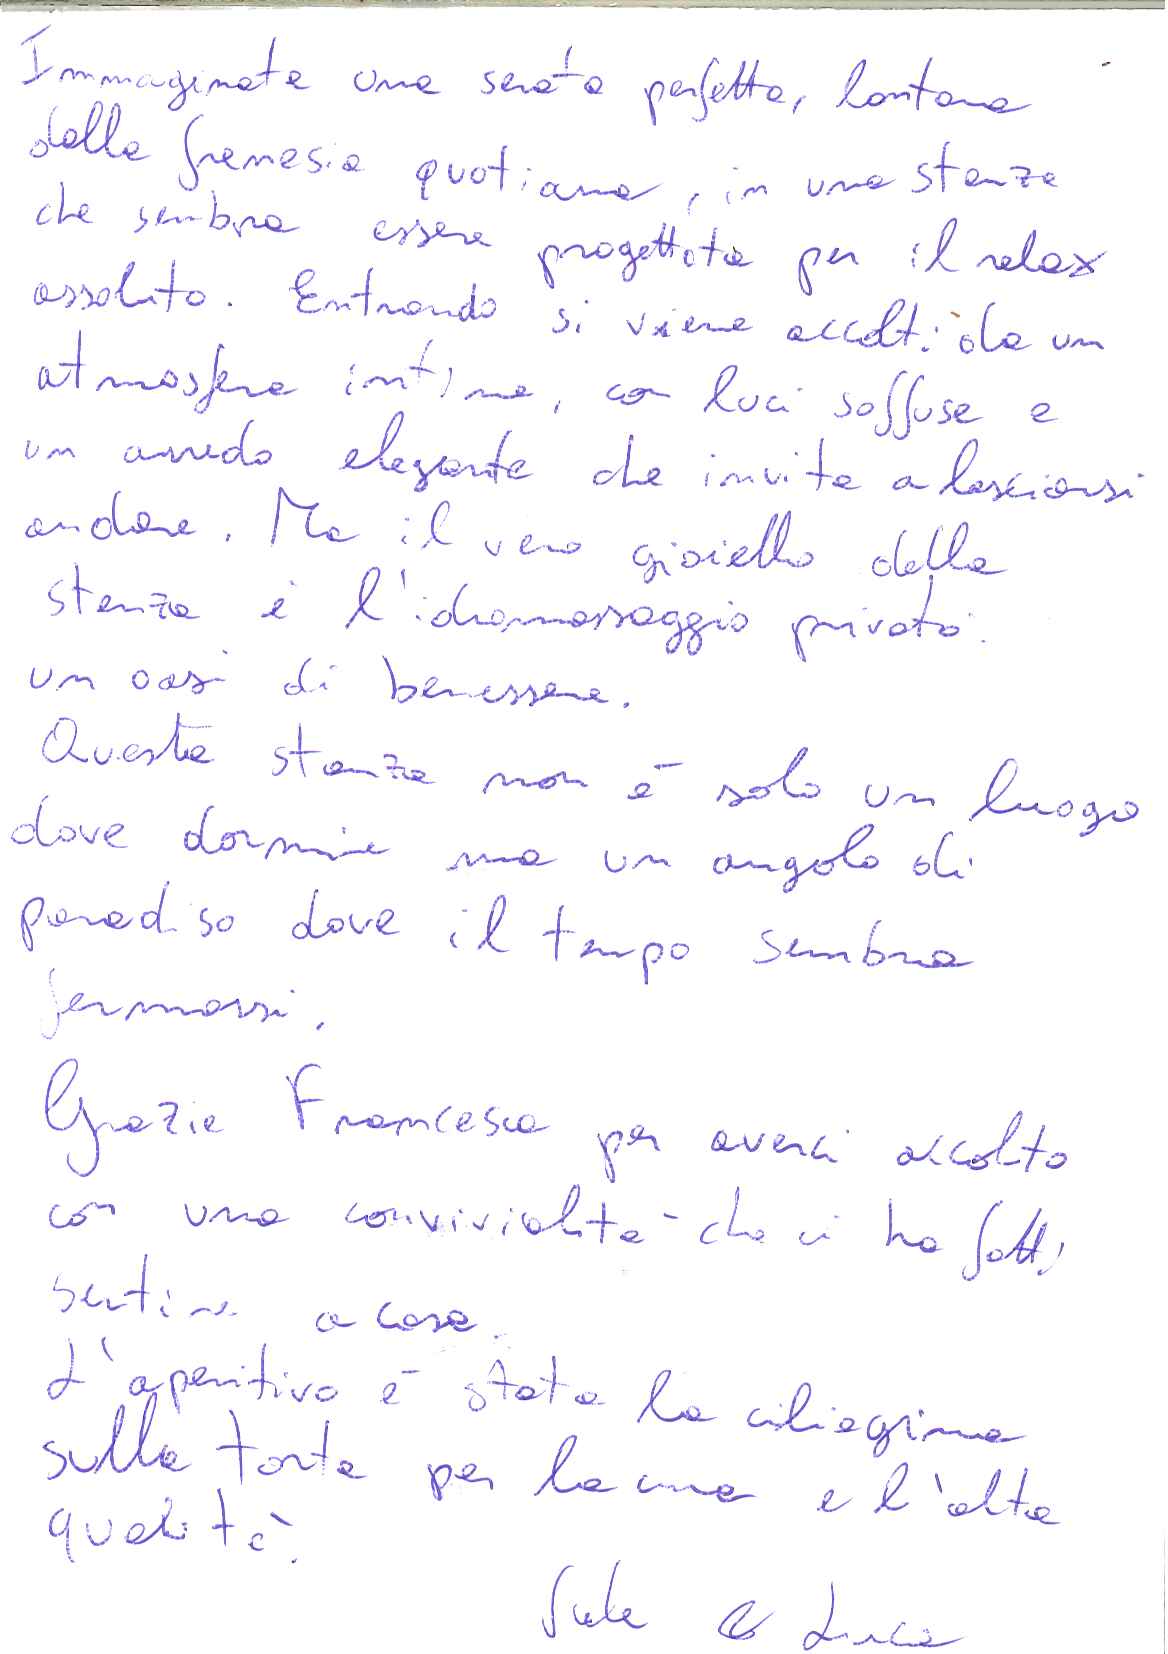 Immaginate una serata perfetta, lontana
dalla frenesia quotiana, in una stanza
che sembra essere progettata per il relax
assoluto. Entrando si viene accolti da un
atmosfera intima, con luci soffuse e
un arredo elegante che invita a lasciarsi
andare. Ma il vero gioiello della
stanza è l'idromassaggio privato.
un oasi di benessere.
Questa stanza non è solo un luogo
dove dormire ma un angolo di
paradiso dove il tempo sembra
fermarsi.
Grazie Francesca per averci accolto
con una convivialità che ci ha fatti
sentire a casa.
L'aperitivo è stata la ciliegina
sulla torta per la cura e l'alta
qualità.
& Luca